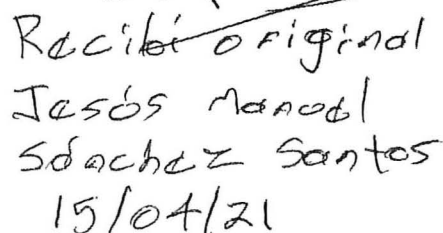 Recibí original
Jesús Manuel
Sánchez Santos
15/04/21